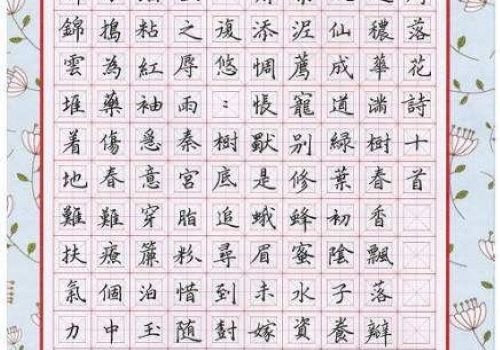 落花詩十首
穠華滿樹春香飄落瓣
仙成道綠葉初陰子養
泥薦寵别修蜂蜜水資
添惆悵是蛾眉未嫁
復悠：樹底追尋到
之辱雨秦宮脂粉惜随
粘紅袖急意穿簾泊玉
搗為藥傷春難療個中
錦雲堆着地難扶氣力